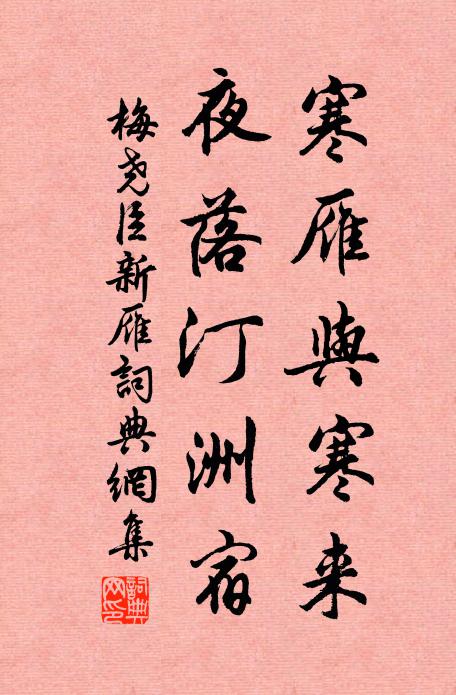 寒雁與寒来
夜落汀洲宿
梅尧臣新雁詞典網集
詞典網印